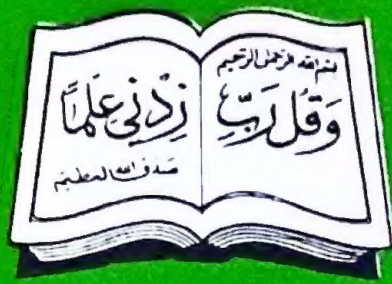 بسم الله الرحمن الرحيم
وَقُل رَبِّ زِدْنِي عِلْمًا
صدق الله العظيم